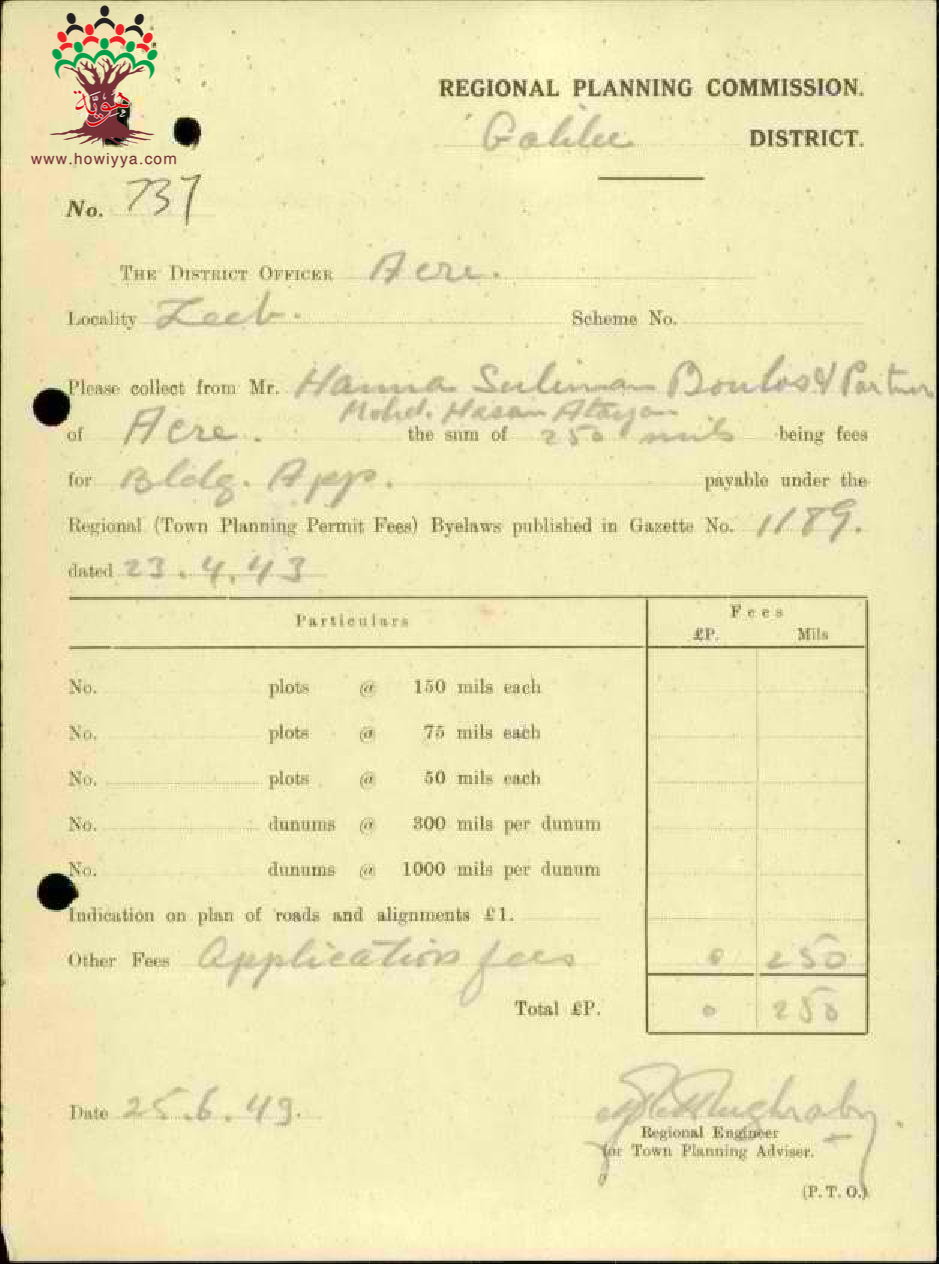 هوية
www.howiyya.com
REGIONAL PLANNING COMMISSION.
Galilee DISTRICT.
No. 737
THE DISTRICT OFFICER Acre.
Locality Zeeb. Scheme No.
Please collect from Mr. Hanna Suliman Boulos & Partner
Mohd. Hasan
of Acre. the sum of 250 mils being fees
for Bldg. App. payable under the
Regional (Town Planning Permit Fees) Byelaws published in Gazette No. 1189.
dated 23.4.43
Particulars Fees
£P. Mils
No. plots @ 150 mils each
No. plots @ 75 mils each
No. plots @ 50 mils each
No. dunums @ 300 mils per dunum
No. dunums @ 1000 mils per dunum
Indication on plan of roads and alignments £1.
Other Fees Application fees 0 250
Total £P. 0 250
Date 25.6.43.
Regional Engineer
for Town Planning Adviser.
(P. T. O.)